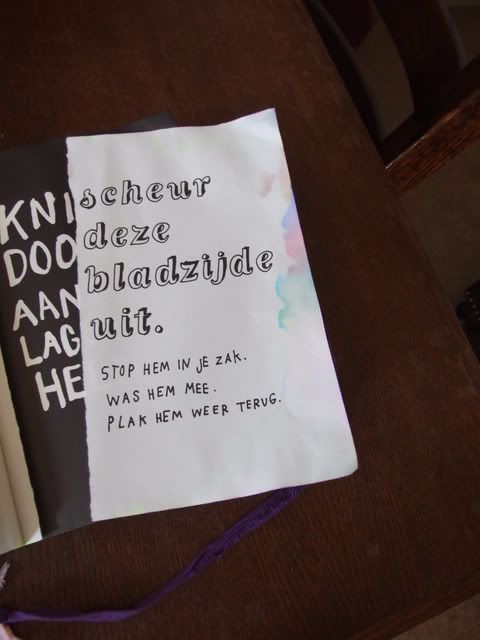 KNI
DOO
AAN
LAG
HE
scheur
deze
bladzijde
uit.
STOP HEM IN JE ZAK.
WAS HEM MEE.
PLAK HEM WEER TERUG.